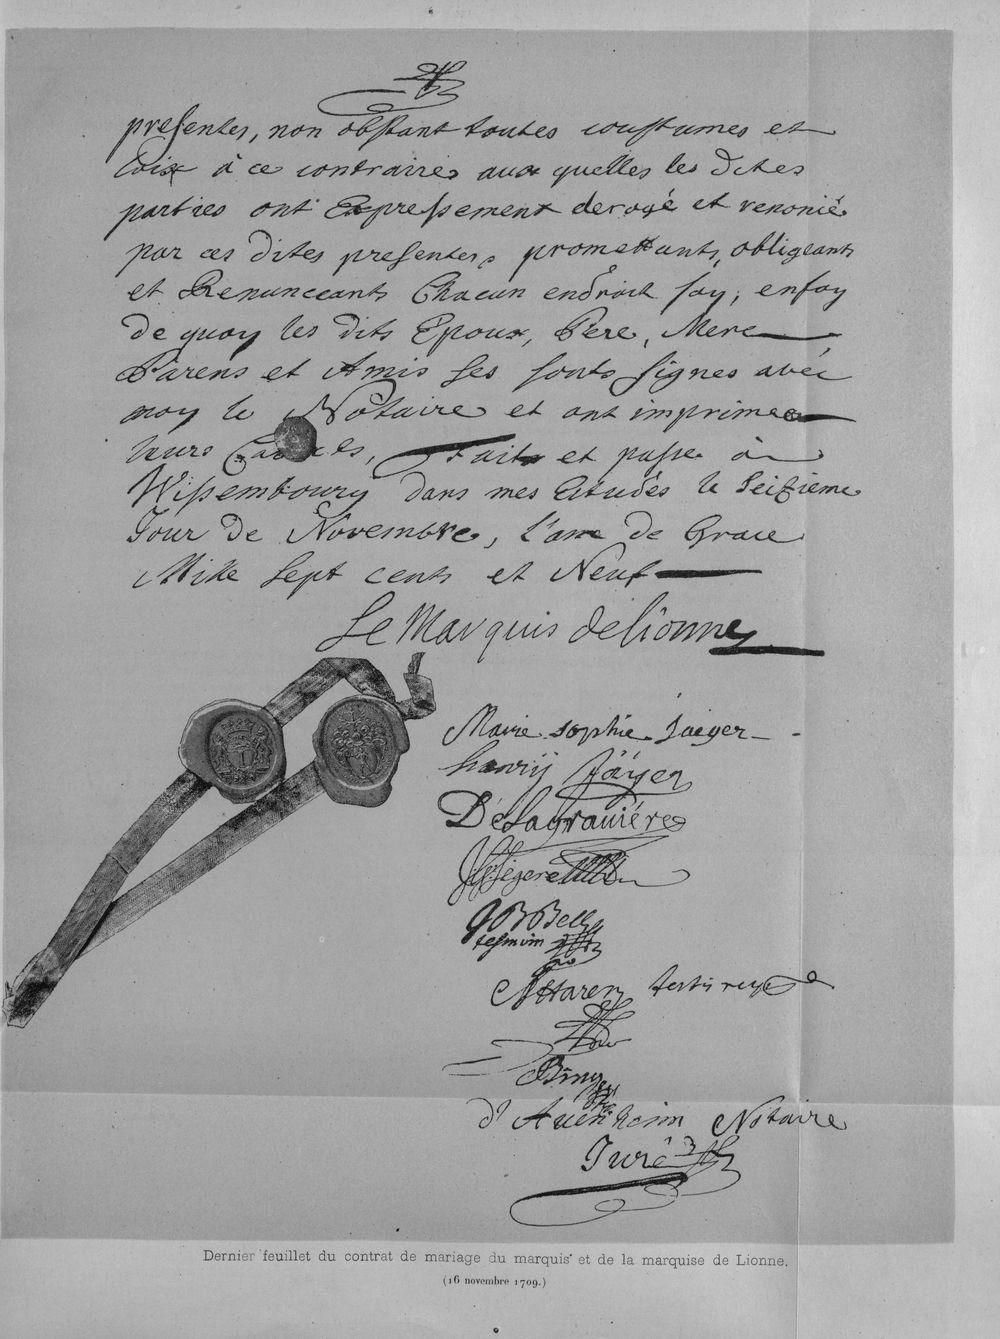 presentes, non obstant toutes coustumes et
Loix à ce contraires aux quelles les dites
parties ont Expressement derogé et renonié
par ces dites presentes, promettants, obligeants
et Renunceants Chacun endroit soy, enfoy
de quoy les dits Epoux, Pere, Mere
Parens et Amis se sonts signes avéc
moy le Nôtaire et ont imprimee
leurs Cachés, Fait et passe à
Wissembourg dans mes Etudes le Seiziéme
Jour de Novembre, l'ane de Grace
Mille Sept cents et Neuf
Le Marquis de Lionne
Marie Sophie Jaeger
hanrÿ Jäger
DeLagraviéres
J B Bell
tesmoin
d'Auenheim Notaire
Juré
Dernier feuillet du contrat de mariage du marquis et de la marquise de Lionne.
(16 novembre 1709.)